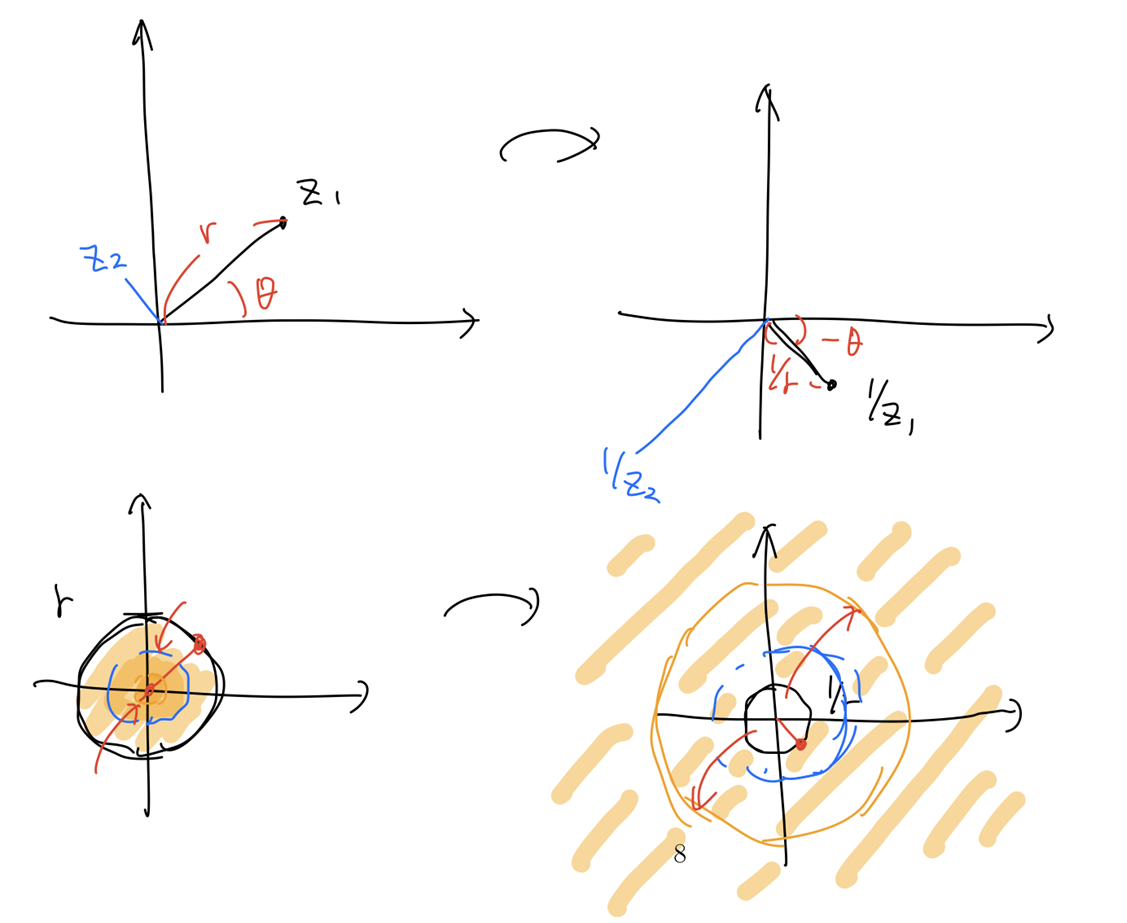 z₁
r
z₂
θ
-θ
1/r
1/z₁
1/z₂
r
1/r
8